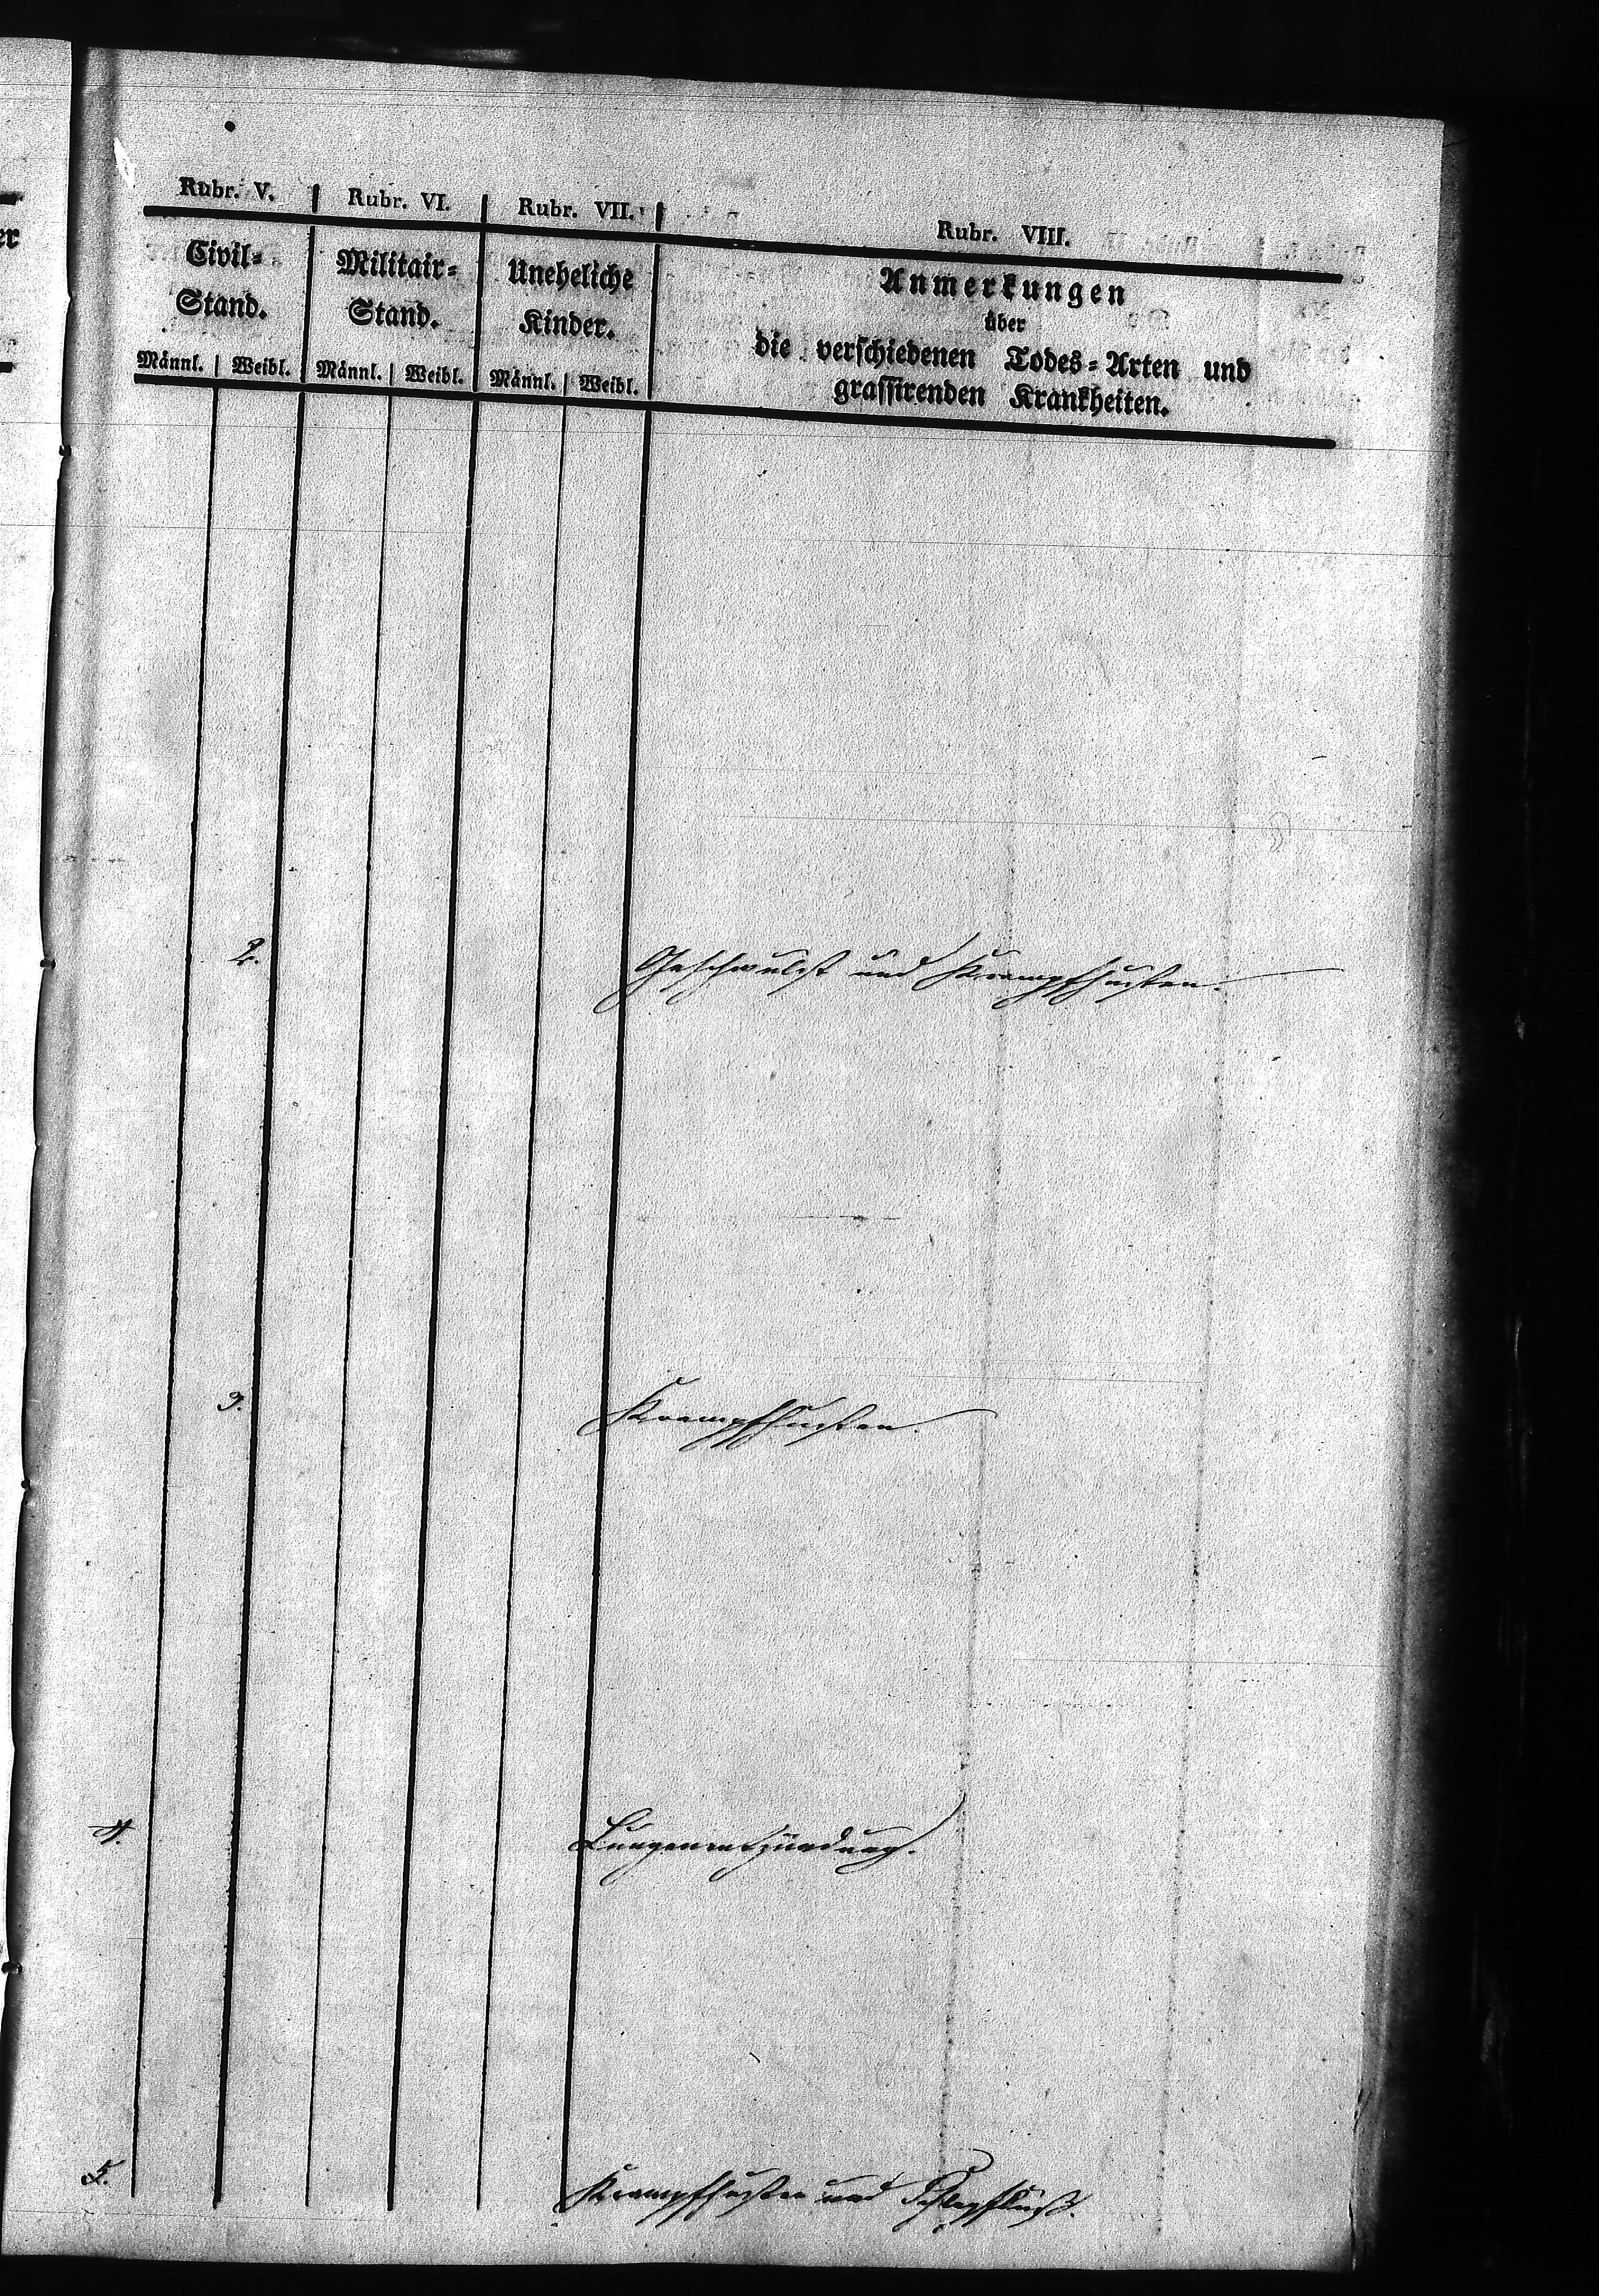 Rubr. V. | Rubr. VI. | Rubr. VII. | Rubr. VIII.
Civil=
Stand.
Männl. | Weibl.
Militair=
Stand.
Männl. | Weibl.
Uneheliche
Kinder.
Männl. | Weibl.
Anmerkungen
über
die verschiedenen Todes=Arten und
grassirenden Krankheiten.
2. Geschwulst und Krampfhusten.
3. Krampfhusten.
4. Lungenentzündung.
5. Krampfhusten und Schlagfluß.
er